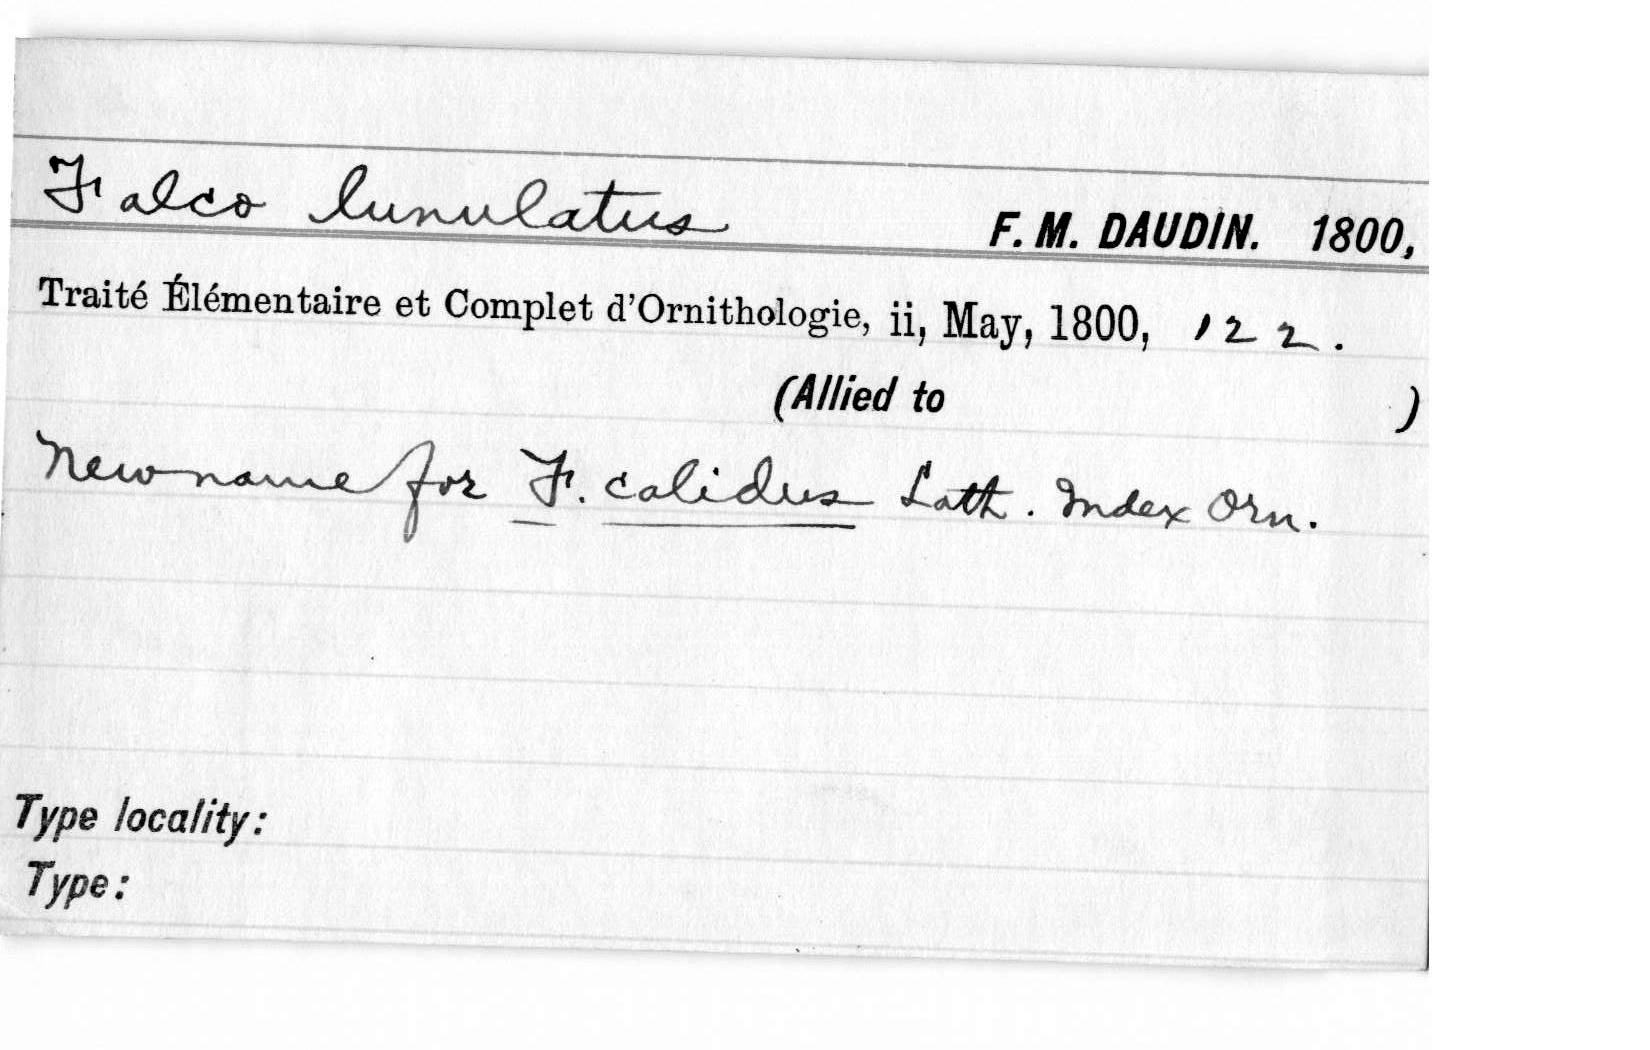 Falco lunulatus F. M. DAUDIN. 1800,
Traité Élémentaire et Complet d'Ornithologie, ii, May, 1800, 122.
(Allied to )
New name for F. calidus Lath. Index Orn.
Type locality:
Type: